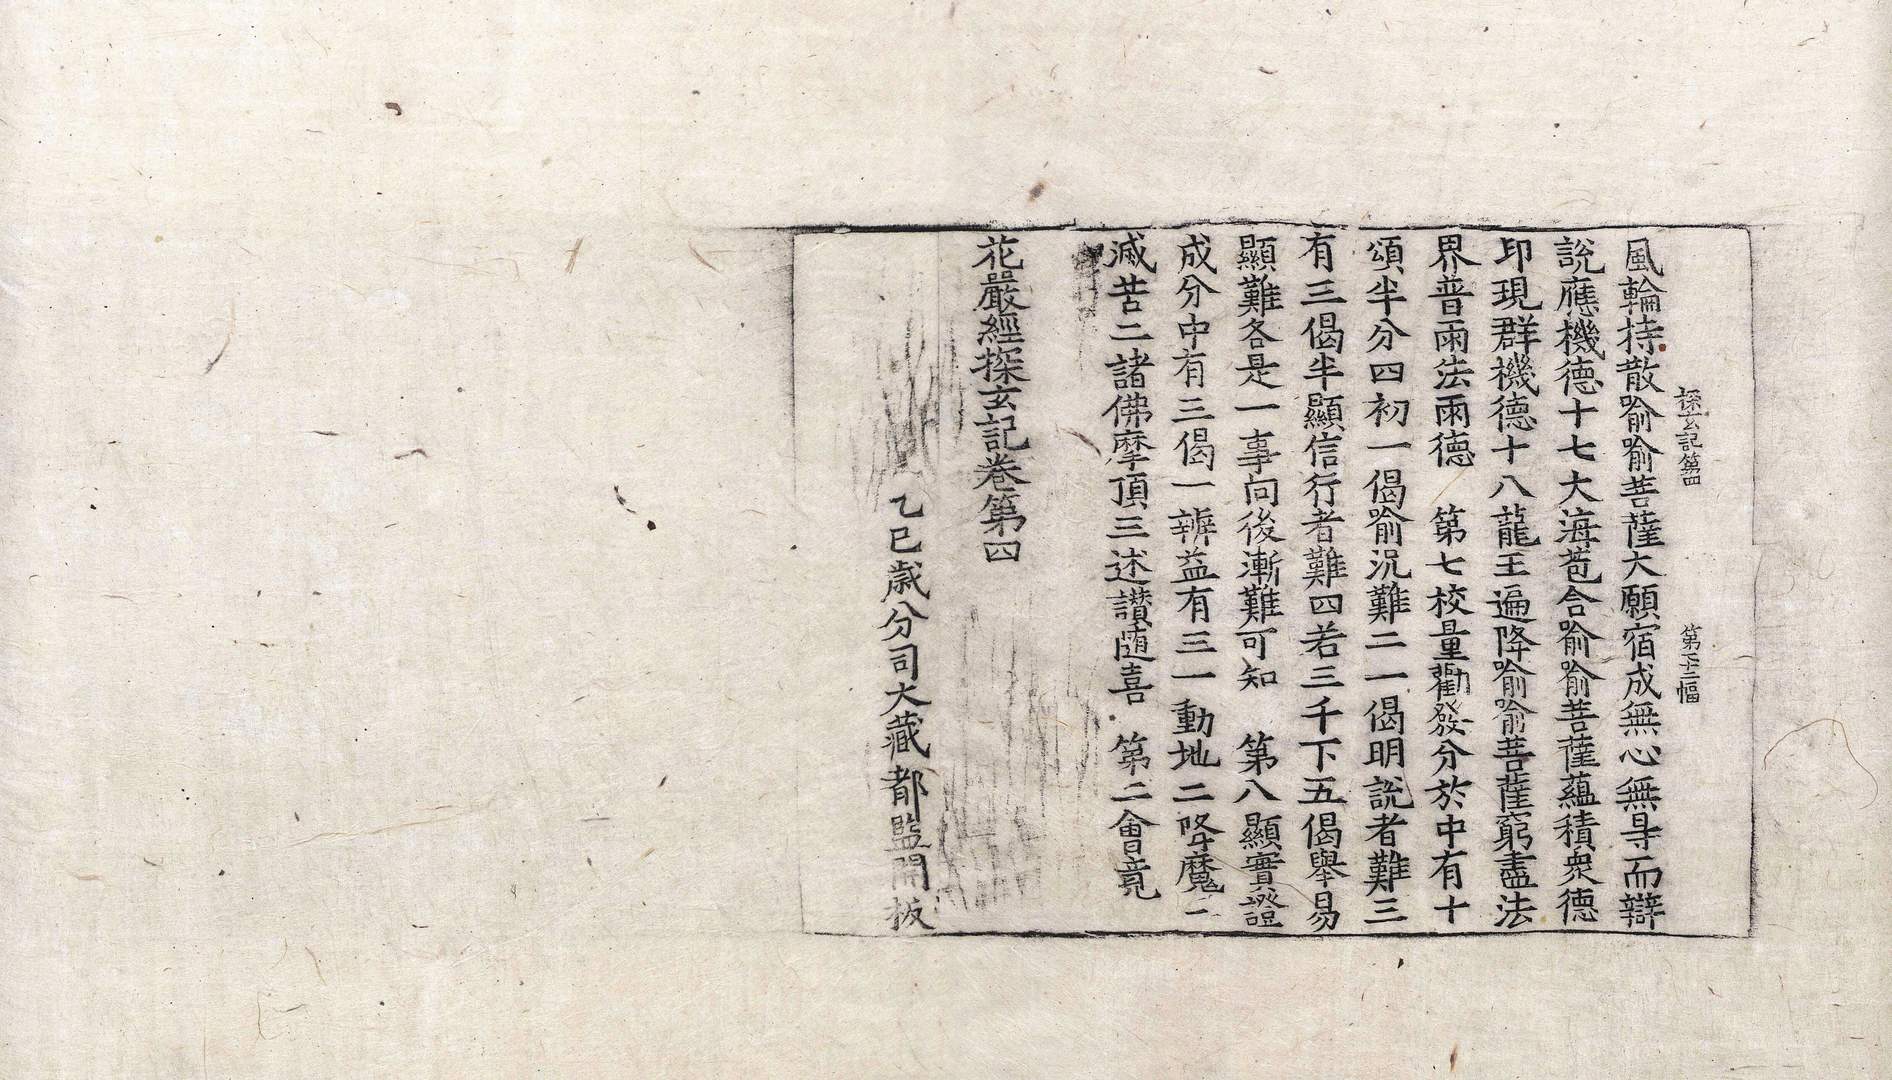 探玄記第四
第五十三幅
風輪持散喻喻菩薩大願宿成無心無㝵而辯
說應機德十七大海苞含喻喻菩薩蘊積衆德
印現群機德十八龍王遍降喻喻菩薩窮盡法
界普雨法雨德　第七校量勸發分於中有十
頌半分四初一偈喻况難二一偈明說者難三
有三偈半顯信行者難四若三千下五偈舉易
顯難各是一事向後漸難可知　第八顯實證
成分中有三偈一辨益有三一動地二降魔二
滅苦二諸佛摩頂三述讃随喜　第二會竟
花嚴經探玄記卷第四
乙巳歳分司大藏都監開板